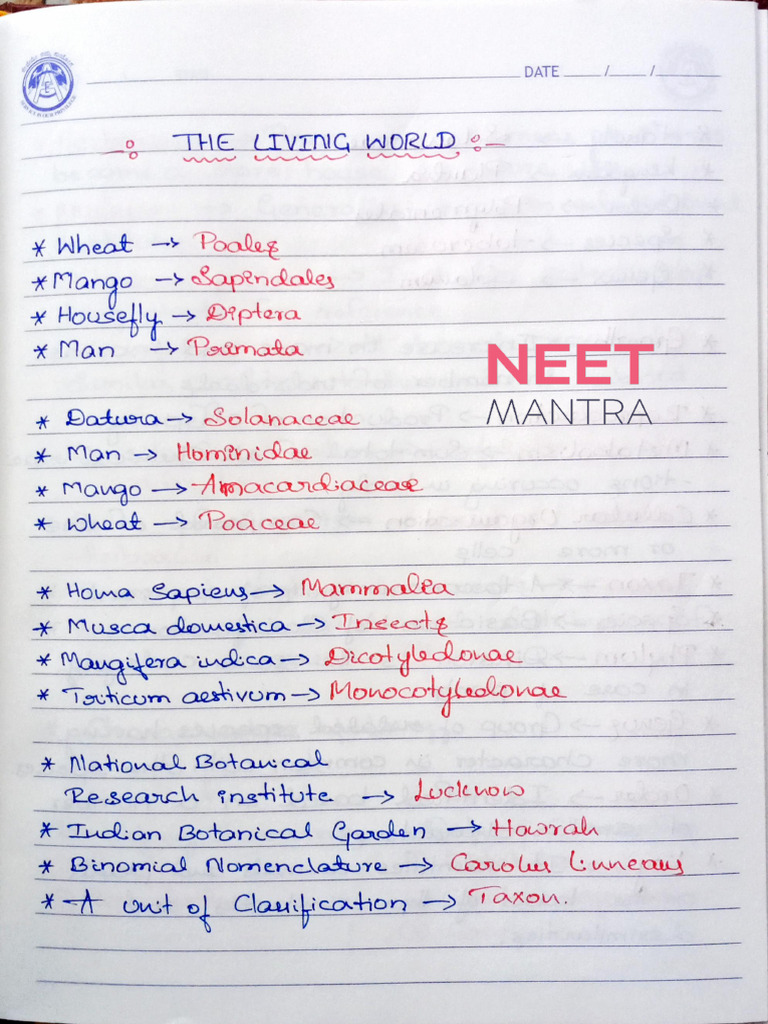 DATE ____ /____ /____
THE LIVING WORLD
* Wheat → Poales
* Mango → Sapindales
* Housefly → Diptera
* Man → Primata
NEET
MANTRA
* Datura → Solanaceae
* Man → Hominidae
* Mango → Anacardiaceae
* Wheat → Poaceae
* Homa Sapiens → Mammalia
* Musca domestica → Insecta
* Mangifera indica → Dicotyledonae
* Triticum aestivum → Monocotyledonae
* National Botanical
Research institute → Lucknow
* Indian Botanical Garden → Howrah
* Binomial Nomenclature → Carolus Linneaus
* A unit of Classification → Taxon.